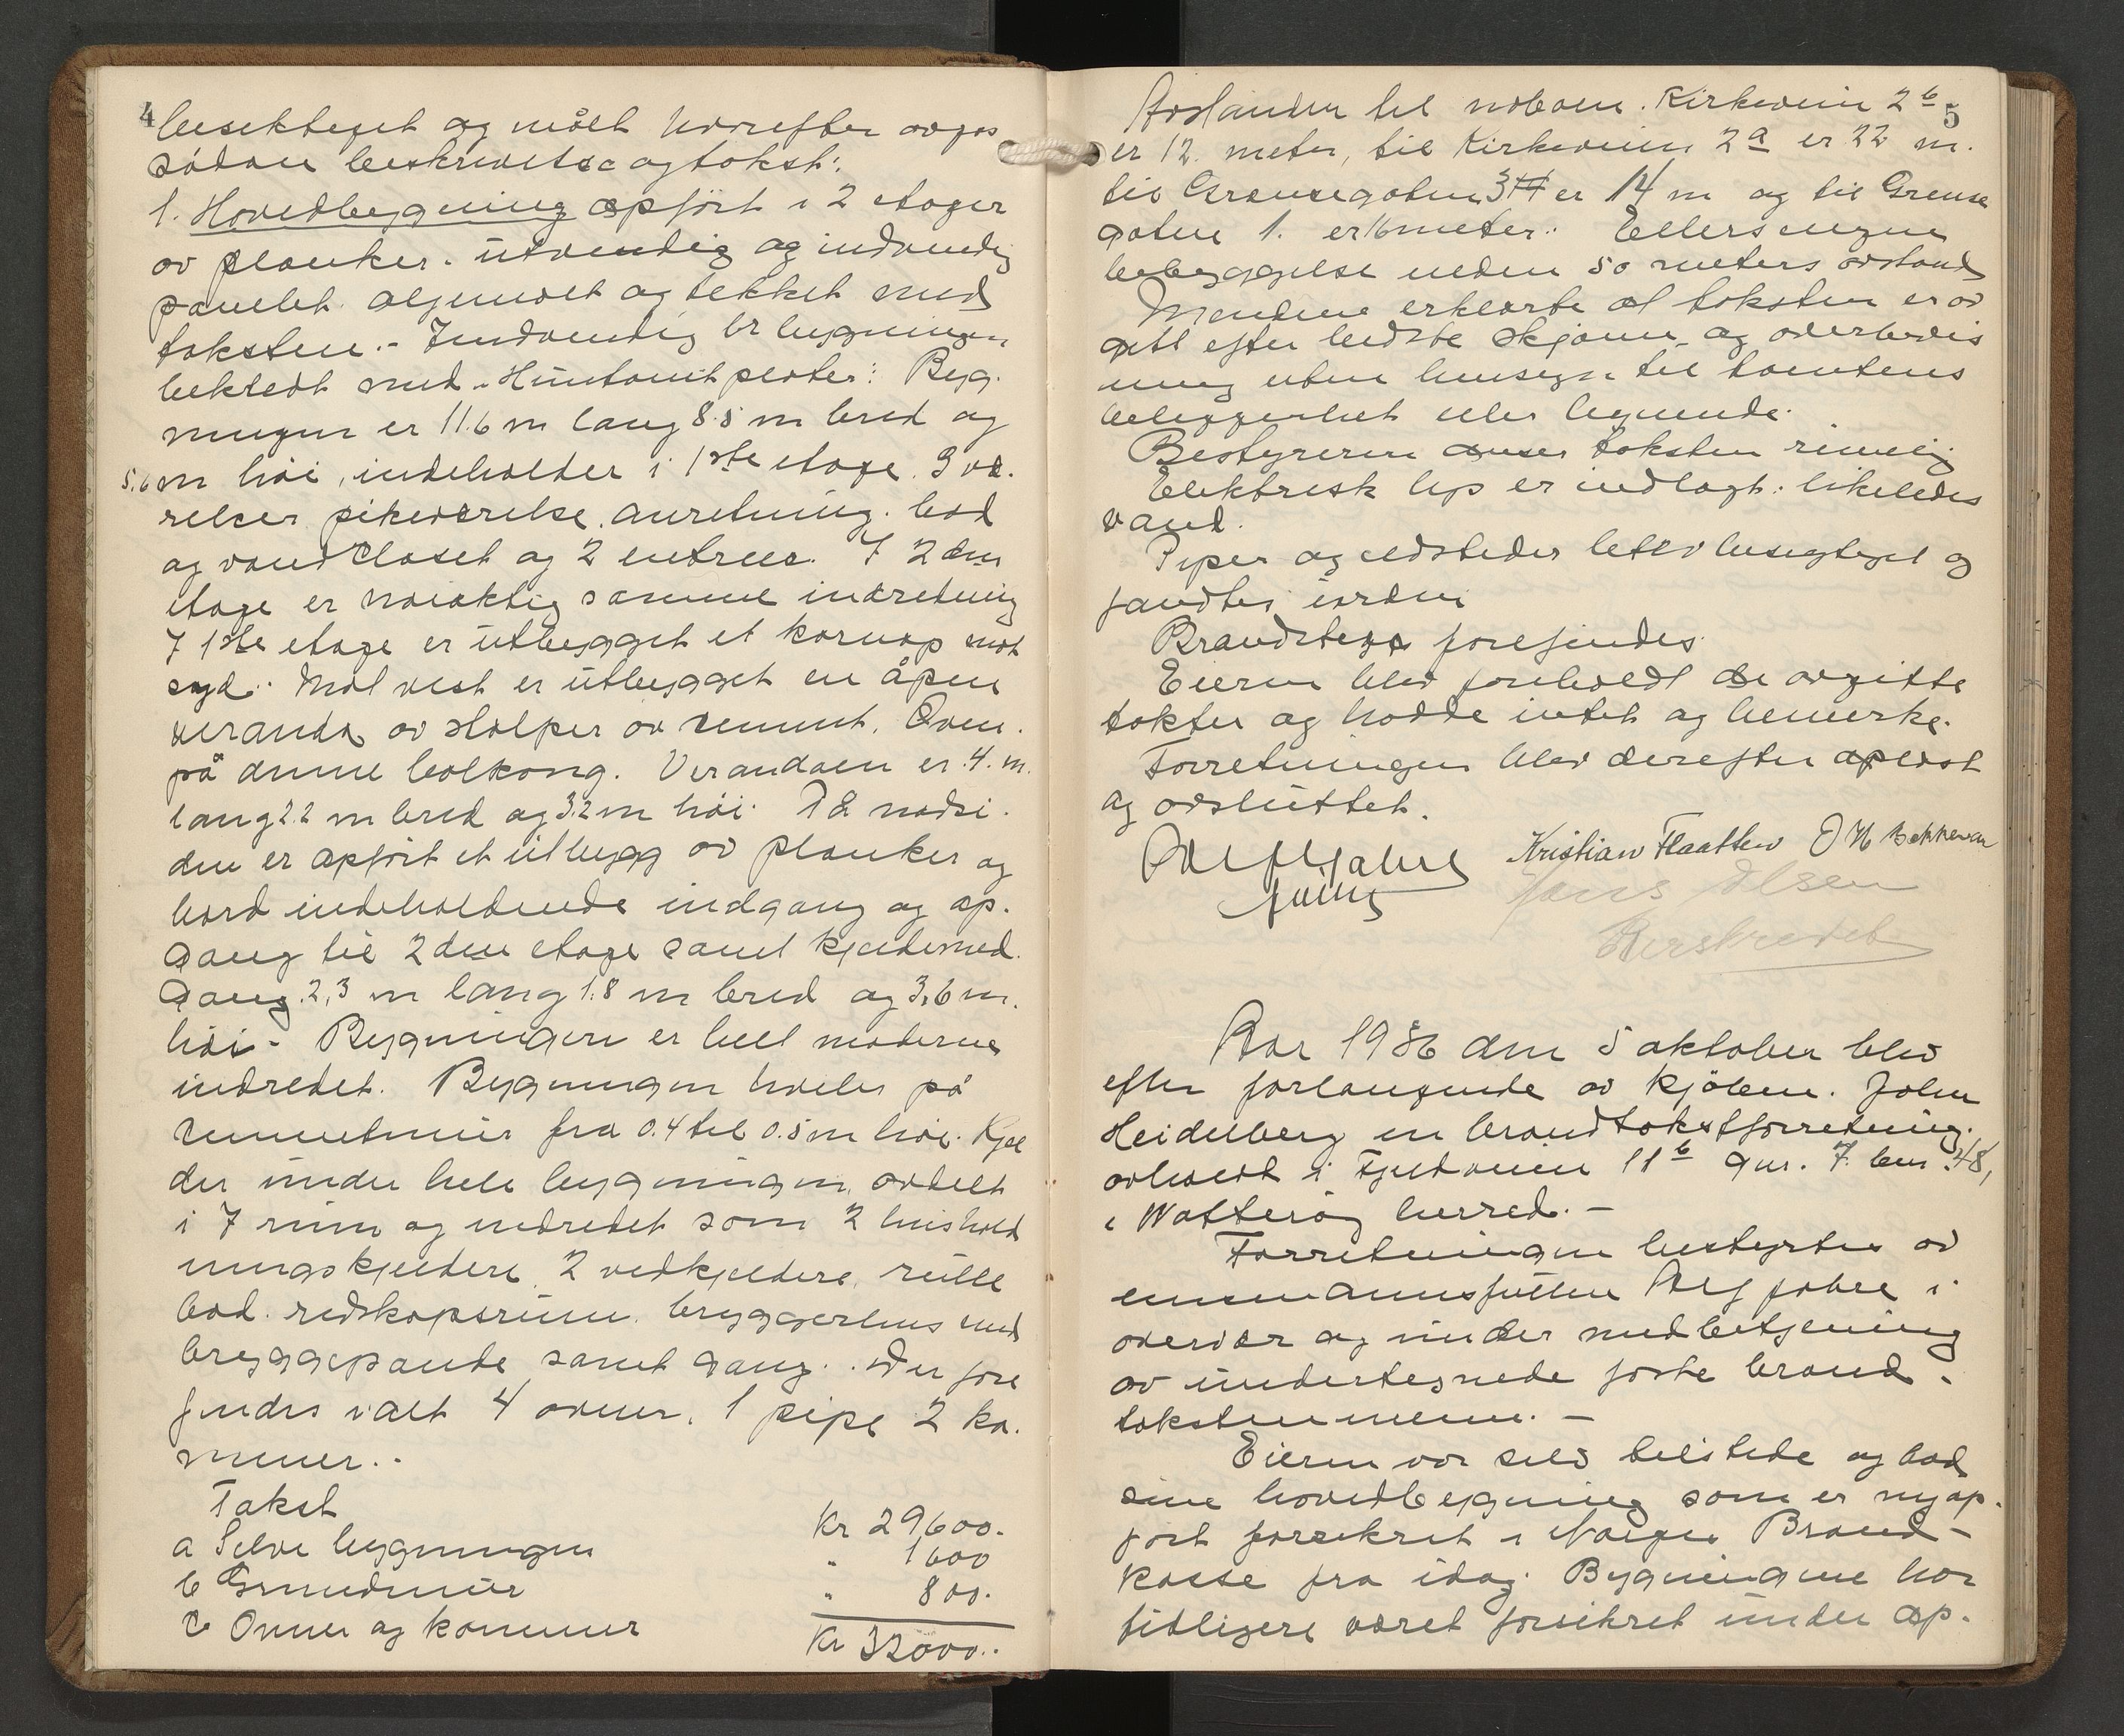 4
besiktiget og målt hvorefter avgas
sådan beskrivelse og takst:
1. Hovedbygning opført i 2 etager
av planker. utvendig og indvendig
panelet. oljemalt og tekket med
taksten. - Indvendig er bygningen
beklædt med Huntonit plater: Byg.
ningen er 11.6 m lang 8.5 m bred og
5.6 m höi, indeholder i 1ste etage. 3 væ.
relser pikeværelse. anretning. bad
og vandcloset og 2 entreer. I 2den
etage er nöiaktig samme indretning
I 1ste etage er utbygget et karnap mot
syd. Mot vest er utbygget en åpen
veranda av stolper av cement. Oven.
på denne balkong. Verandaen er 4. m.
lang 2.2 m bred og 3.2 m höi. På nordsi.
den er opført et utbygg av planker og
bord indeholdende indgang og op.
gang til 2den etage samt kjeldernед.
gang. 2,3 m lang 1.8 m bred og 3,6 m.
höi - Bygningen er helt moderne
indredet. Bygningen hviler på
cementmur fra 0.4 til 0.5 m höi. Kjel
der under hele bygningen, avdelt
i 7 rum og indredet som 2 hushold
ningskjeldere, 2 vedkjeldere, rulle
bod. redskapsrum. bryggerhus med
bryggepande samt gang. Der fore
findes ialt 4 ovner, 1 pipe 2 ka.
miner..
Takst
a Selve bygningen Kr 29600.
b Grundmur " 1600
c Ovner og kaminer " 800.
Kr 32000..
5
Avstanden til naboen. Kirkeveien 2b
er 12. meter, til Kirkeveien 2a er 22 m.
til Grensegaten 3 er 14 m og til Grense
gaten 1. er 16 meter. Ellers ingen
bebyggelse inden 50 meters avstand
Mendene erklærte at taksten er av
gitt efter bedste skjønn og overbevis
ning uten hensyn til tomtens
beliggenhet eller lignende.
Bestyreren anser taksten rimelig
Elektrisk lys er indlagt. likeledes
vand.
Piper og ildsteder blev besigtiget og
fandtes iorden
Brandstega forefindes.
Eieren blev foreholdt de avgitte
takster og hadde intet og bemerke.
Forretningen blev derefter oplæst
og avsluttet.
Alf Jahre Kristian Flaatten O H Bakkevar
fullm Jens Olsen
Berskrevet
Aar 1936 den 5 oktober blev
efter forlangende av kjöbm. John
Heidelberg en brandtakstforretning.
avholdt i Fjeldveien 11b gnr. 7. bnr. 48,
i Nøtterøy herred. -
Forretningen bestyrtes av
lensmannsfullm Alf Jahre i
overvær og under medbetjening
av undertegnede faste brand.
takstmenn. -
Eieren var selv tilstede og bad
sine hovedbygning som er nyop.
ført forsikret i Norges Brand-
kasse fra idag. Bygningene har
tidligere været forsikret under op.